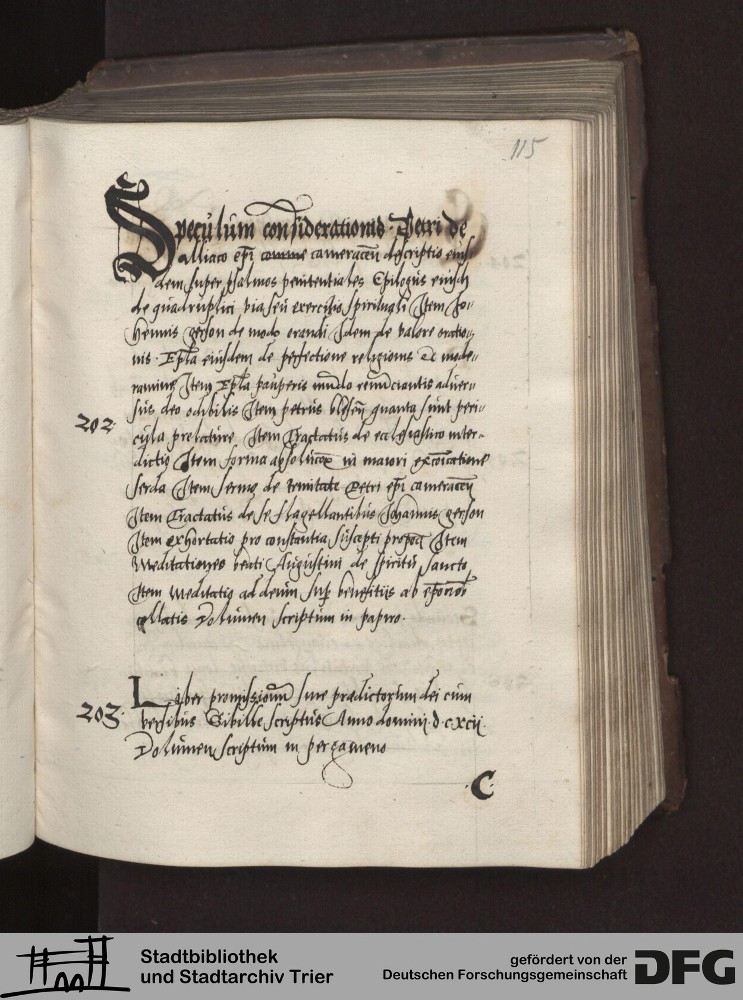 115
Speculum considerationis. Petri de
alliaco epi comme cameraceñ descriptio eius
dem super psalmos penitentiales Epilogus eiusd
de quadruplici via seu exercitio spirituali Item Jo-
hannis gerson de modo orandi Idem de valore oratio-
nis. Epła eiusdem de perfectione religionis & mode-
ramine Item Epła pauperis mundo renunciantis adver-
sus deo odibilis Item petrus quanta sunt peri-
202 cula prelature. Item Tractatus de ecclesiastico inter-
dicto Item forma in maiori
Item sermo de trinitate Petri epi cameraceñ
Item Tractatus de se flagellantibus Johannis gerson
Item exhortatio pro constantia suscepti Item
Meditationes beati Augustini de spiritu sancto
Item meditatio ad deum sup beneficiis ab
collatis Volumen scriptum in papiro.
203. Liber promissionum sive predictorum dei cum
versibus Sibille scriptus Anno domini
Volumen scriptum in pergameno
C
Stadtbibliothek
und Stadtarchiv Trier
gefördert von der
Deutschen Forschungsgemeinschaft
DFG